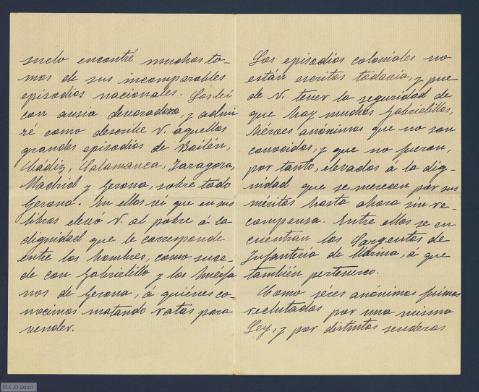 suelo encontré muchos to-
mos de sus incomparables
episodios nacionales. Los leí
con ansia devoradora, y admi-
ré como describe V. aquellos
grandes episodios de Bailén,
Cádiz, Salamanca, Zaragoza,
Madrid y Gerona, sobre todo
Gerona. En ellos vi que en sus
libros elevó V. al pobre á la
dignidad que le corresponde
entre los hombres, como suce-
de con Gabrielillo y los huérfa-
nos de Gerona, á quiénes co-
nocimos matando ratas para
vender.
Los episodios coloniales no
están escritos todavia, y pue-
de V. tener la seguridad de
que hay muchos Gabrielillos,
héroes anónimos que no son
conocidos, y que no fueron,
por tanto, elevados á la dig-
nidad que se merecen por sus
méritos hasta ahora sin re-
compensa. Entre ellos se en-
cuentran los Sargentos de
Infanteria de Marina, á que
también pertenezco.
Como séres anónimos fuimos
reclutados por una misma
Ley, y por distintos senderos